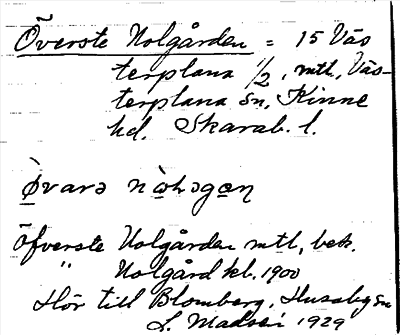 Överste Holgården = 15 Väs
terplana 1/2, mtl, Väs-
terplana sn, Kinne
hd. Skarab. l.
Öfverste Holgården mtl, bebt.
" Holgård kb. 1900
Hör till Blomberg, Husaby sn
1929